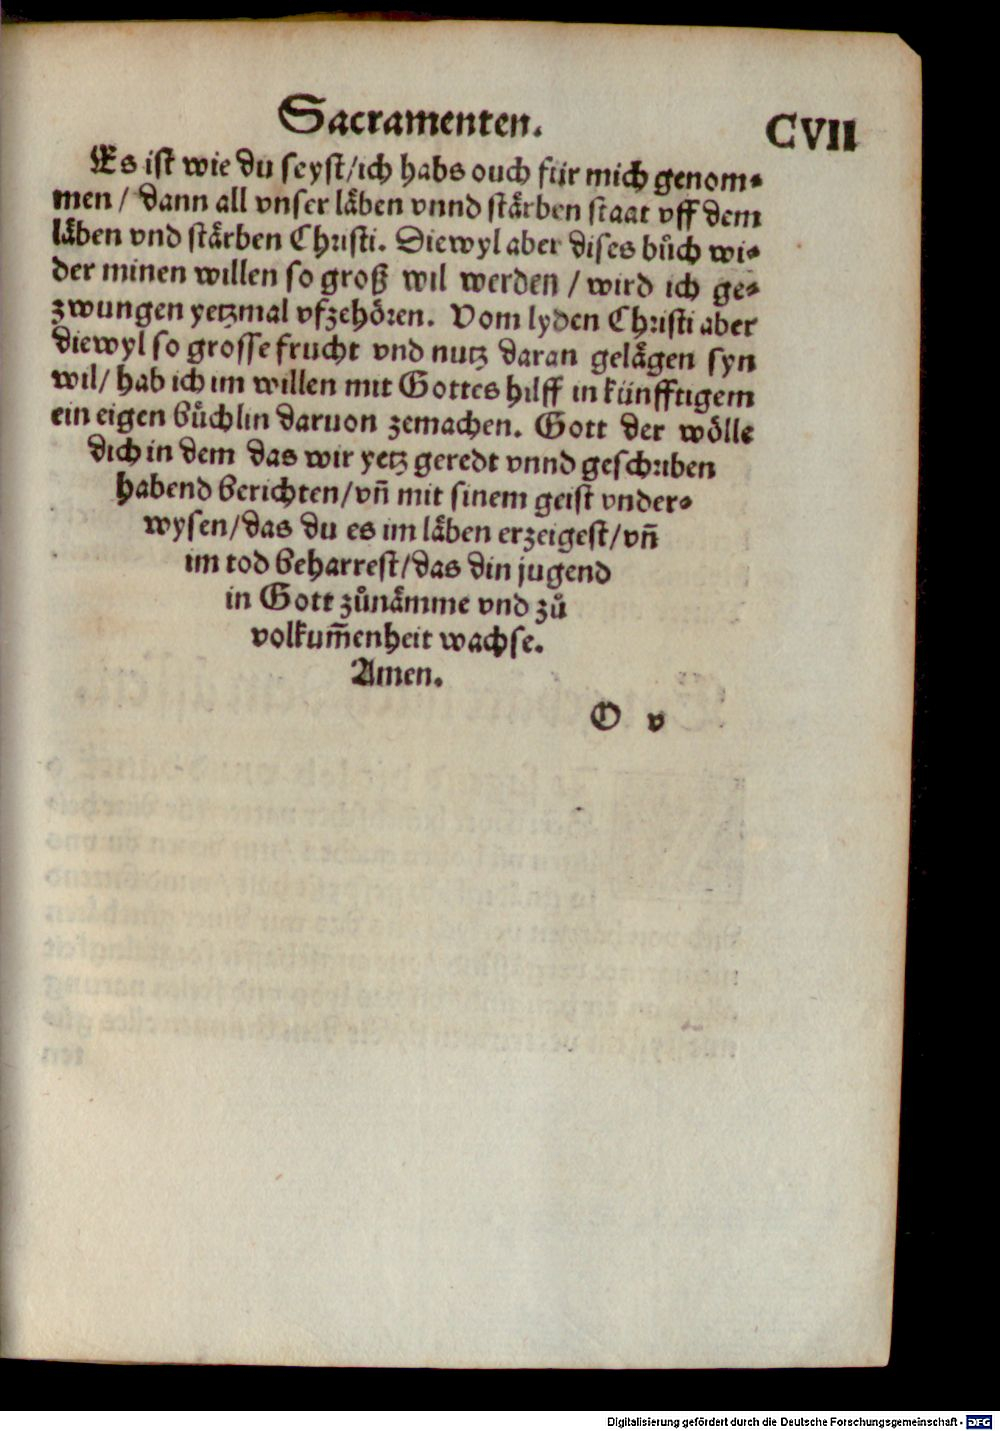 Sacramenten. CVII
Es ist wie du seyst/ich habs ouch für mich genom-
men / dann all vnser läben vnnd stärben staat vff dem
läben vnd stärben Christi. Diewyl aber dises bůch wi-
der minen willen so groß wil werden / wird ich ge-
zwungen yetzmal vfzehören. Vom lyden Christi aber
diewyl so grosse frucht vnd nutz daran gelägen syn
wil/ hab ich im willen mit Gottes hilff in künfftigem
ein eigen bůchlin daruon zemachen. Gott der wölle
dich in dem das wir yetz geredt vnnd geschriben
habend berichten/vñ mit sinem geist vnder-
wysen/das du es im läben erzeigest/vñ
im tod beharrest/das din jugend
in Gott zůnämme vnd zů
volkum̃enheit wachse.
Amen.
O v
Digitalisierung gefördert durch die Deutsche Forschungsgemeinschaft - DFG